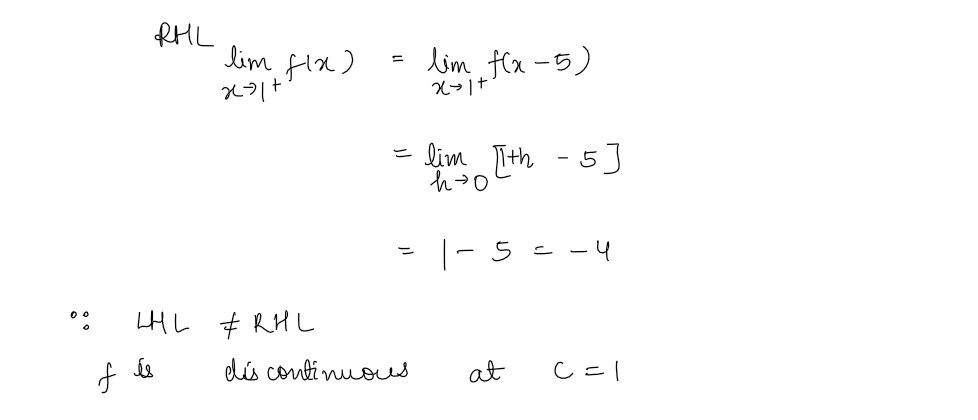 RHL
lim f(x) = lim f(x - 5)
x→1+ x→1+
= lim [1+h - 5]
h→0
= 1 - 5 = -4
∵ LHL ≠ RHL
f is discontinuous at c = 1